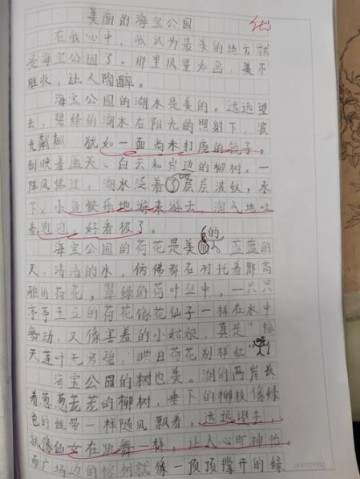 美丽的海宝公园
在我心中，我认为最美的地方就
是海宝公园了。那里风景如画，美不
胜收，让人陶醉。
海宝公园的湖水是美的。远远望
去，碧绿的湖水在阳光的照射下，波
光粼粼，犹如一面尚未打磨的镜子，
倒映着蓝天、白云和岸边的柳树。一
阵风佛过，湖水泛着层层波纹，水
下，小鱼快乐地游来游去，淘气地吐
着泡泡，好看极了。
海宝公园的荷花是美的。蓝蓝的
天，清清的水，仿佛都在衬托着那高
雅的荷花，翠绿的荷叶丛中，一只只
亭亭玉立的荷花像花仙子一样在水中
舞动，又像害羞的小姑娘，真是“接
天莲叶无穷碧，映日荷花别样红
海宝公园的树也美。湖的两岸长
着葱葱茏茏的柳树，垂下的柳枝像绿
色的丝带一样随风飘着，远远望去，
就像仙女在跳舞一样，让人心旷神怡
而广场边的树就像一顶顶撑开的绿